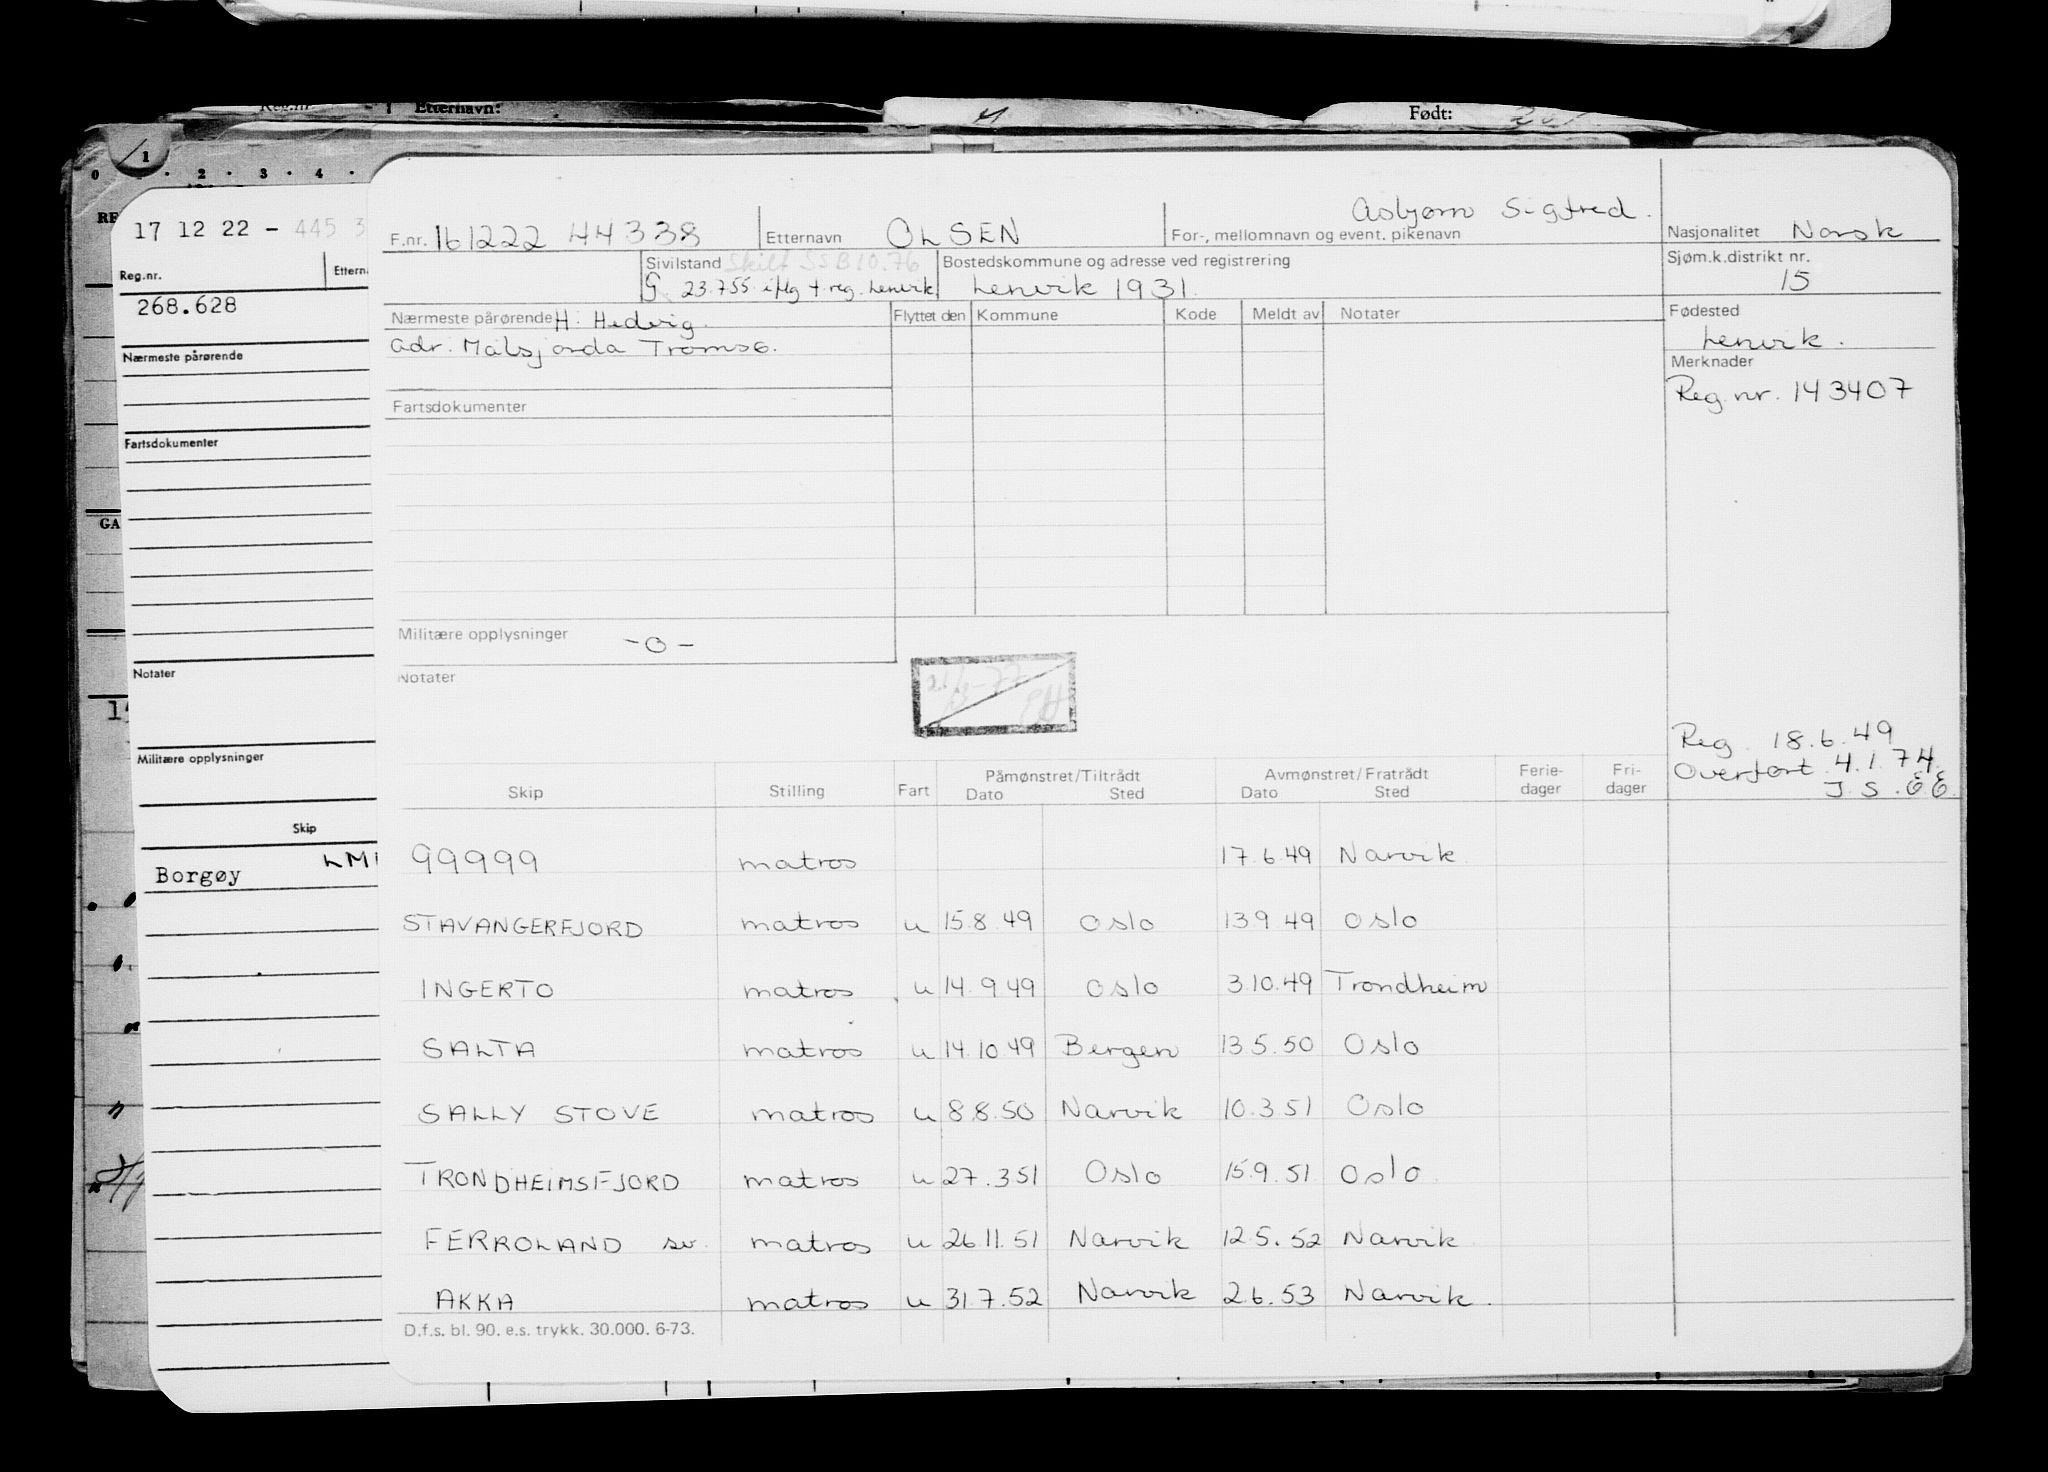 Reg.nr. Etternavn: Født:
/1
0 2 · 3 · 4 ·
17 12 22 - 445 3
Reg.nr. Ettern
268.628
Nærmeste pårørende
Fartsdokumenter
GA
Notater
Militære opplysninger
Skip
Borgøy LM
F.nr. 161222 44338 Etternavn OLSEN Asbjørn Sigfred.
For-, mellomnavn og event. pikenavn
Nasjonalitet Norsk
Sivilstand Skilt SSB 10.76
G. 23.755 iflg f.reg. Lenvik
Bostedskommune og adresse ved registrering
Lenvik 1931.
Sjøm.k.distrikt nr.
15
Nærmeste pårørende H: Hedvig.
adr. Målsjorda Tromsø.
Flyttet den Kommune Kode Meldt av Notater
Fødested
Lenvik.
Merknader
Reg.nr. 143407
Fartsdokumenter
Militære opplysninger -0-
Notater
Reg. 18.6.49
Overført 4.1.74.
J.S.EE.
Skip Stilling Fart Påmønstret/Tiltrådt Avmønstret/Fratrådt Ferie- Fri-
Dato Sted Dato Sted dager dager
99999 matros 17.6.49 Narvik
STAVANGERFJORD matros u 15.8.49 Oslo 13.9.49 Oslo
INGERTO matros u 14.9.49 Oslo 3.10.49 Trondheim
SALTA matros u 14.10.49 Bergen 13.5.50 Oslo
SALLY STOVE matros u 8.8.50 Narvik 10.3.51 Oslo
TRONDHEIMSFJORD matros u 27.3.51 Oslo 15.9.51 Oslo
FERROLAND sv. matros u 26.11.51 Narvik 12.5.52 Narvik
AKKA matros u 31.7.52 Narvik 2.6.53 Narvik.
D.f.s. bl. 90. e.s. trykk. 30.000. 6-73.